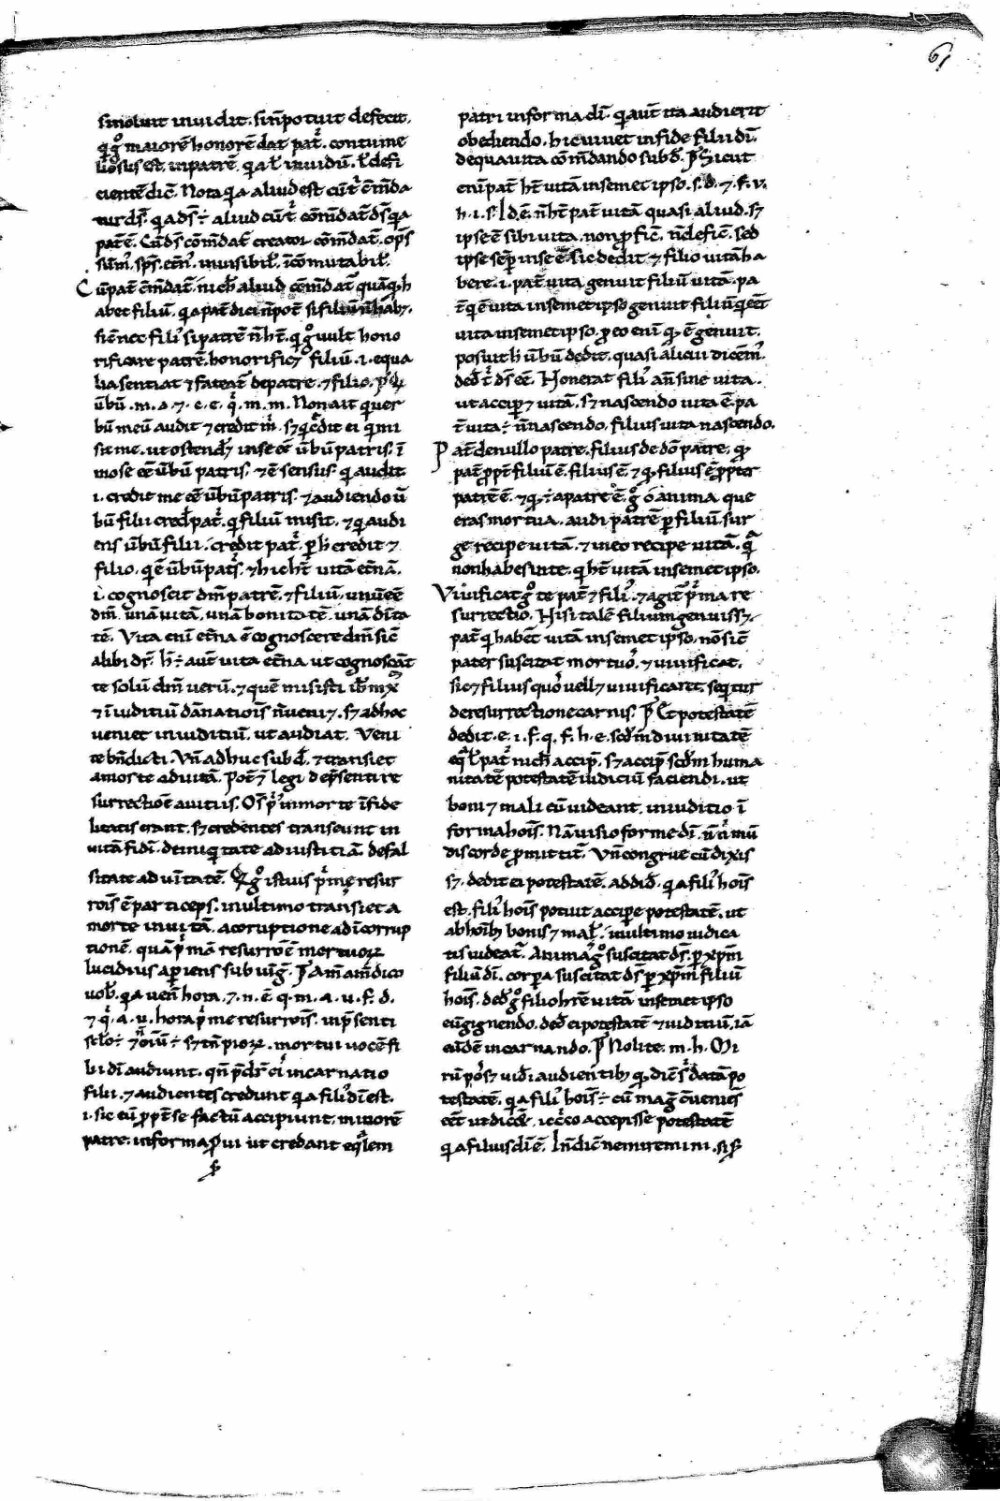 61
si noluit inuidit. si nͥ potuit defecit.
q̇ gͦ maiorē honorē dat patͥ. contume
liosus est in patrē. qͥa ł inuidū. ł defi
cientē dic̄. Nota qͥa aliud est cū tͥ c̄m̄da
tur dſ̄. qͥa dſ̄ ÷ aliud cū tͥ com̄dat dſ̄ qͥa
patͥ ē. Cū dſ̄ com̄dat creator com̄dat. op̄s
sūm̄. sp̄s. et̄nͥ. inuisibił. īcōmutabił.
Cū pat̄ c̄m̄dat nich̄ aliud com̄dat qͣuā qͥ h
abet filiū. qͥa pat̄ dici n̄ pot̄ si filiū n̄ habꝫ.
sic̄ nec filiꝰ si patrē n̄ h̄t. qͥ gͦ uult hono
rificare patrē. honorificꝫ filiū .i. equa
lia sentiat ⁊ fateat̄ de patre. ⁊ filio.
ūbū .m. a. ⁊. c. e. qͥ .m. m. Non ait qͥ uer
bū meū audit ⁊ credit m̄. sꝫ qͥ c̄dit ei qͥ mi
sit me. ut ostendꝫ in se eē ūbū patris. ī
mo se eē ūbū patris. ⁊ ē sensus. qͥ audit
.i. credit me eē ūbū patris. ⁊ audiendo ū
bū filii credͭ patͥ. qͥ filiū misit. ⁊ qͥ audi
ens ūbū filii. credit patͥ. ꝑ h̄ credit ⁊
filio. qͥ ē ūbū patͥs. ⁊ hic h̄t uitā et̄nā.
.i. cognoscit dm̄ patrē. ⁊ filiū. unū eē
dm̄. unā uitā. unā bonitatē. unā dīta
tē. Vita enī et̄na ē cognoscere dm̄ sic̄
alibi dr̄. h̄ ÷ aut̄ uita et̄na. ut cognoscāt
te solū dm̄ uerū. ⁊ quē misisti ih̄m xp̄
⁊ ī iuditiū dānatiois n̄ ueniꝫ. sꝫ ad hoc
ueniet in iuditiū. ut audiat. Veni
te bn̄dicti. Vn̄ adhuc subd̄. ⁊ transiet
a morte ad uitā. Pot̄ ÷ legi de p̄senti re
surrectiōe animis. Oſ̄ pͥ in morte īfide
litatis erant. sꝫ credentes transeunt in
uitā fidī. de iniqͥtate ad iustitiā. de fal
sitate ad uītatē. Qͥ gͦ istius pͥme resur
rois ē particeps. in ultimo transiet a
morte in uitā. a coruptione ad īcorrup
tionē. quā pͥmā resurroē mortuoꝝ
lucidius aperiens sub iūg̊. Am̄ am̄ dico
uob̄. qͥa uen̄ hora. ⁊. n. ē q. m. a. u. f. d.
⁊ qͥ. a. u. hora pͥme resurrois. in p̄senti
scło ÷ ⁊ n̄ oīū ÷ sꝫ tn̄ pioꝝ. mortui uocē fi
lii dī audiunt. qn̄ p̄dr̄ eiͥ incarnatio
filii. ⁊ audientes credunt qͥa filiꝰ dī est.
.i. sic eū ꝓpt̄ se factū accipiunt. minorē
patre. in forma ẜui ut credant eqͣlem
patri in forma dī. qͥ aut̄ ita audierit
obediendo. hic uiuet in fide filii dī.
de qua uita com̄dando subd̄. Sicut
enī pat̄ h̄t uitā in semet ipso. s. d. ⁊ f. v.
h. i. s. Id. ē. n̄ h̄t pat̄ uitā quasi aliud. sꝫ
ipse ē sibi uita. non ꝓficͭ. n̄ deficͭ. sed
ipse semꝑ in se ē sic dedit ⁊ filio uitā ha
bere .i. pat̄ uita genuit filiū uitā. pa
t̄ qͥ ē uita in semet ipso genuit filiū qͥ eēt
uita in semet ipso. ꝓ eo enī qͥ ē genuit.
posuit h̄ ūbū dedit. quasi alicui dicem̄.
ded̄ tͥ dſ̄ eē. Non erat filiꝰ an̄ sine uita.
ut accipꝫ uitā. sꝫ nascendo uita ē. pa
t̄ uita ÷ n̄ nascendo. filius uita nascendo.
Pat̄ de nullo patre. filius de dō patre. qͥ
pat̄ ꝓpt̄ filiū ē. filius ē ⁊ qͥ filius ē ꝓpter
patrē ē. ⁊ qͥ ÷ a patre ē. gͦ o anima que
eras mortua. audi patrē ꝑ filiū. sur
ge recipe uitā. ⁊ in eo recipe uitā. qͣ
non habes in te. qͥ h̄t uitā in semet ipso.
Viuificat gͦ te pat̄ ⁊ filiꝰ. ⁊ agit̄ pͥma re
surrectio. Nisi talē filium genuissꝫ.
pat̄ qͥ habeēt uitā in semet ipso. nō sic̄
pater suscitat mortuoˢ. ⁊ uiuificat.
sic ⁊ filius quoˢ uellꝫ uiuificaret. seqͥtur
de resurrectione carnis. Et potestatē
dedit. e. i. f. q. f. h. e. scdm̄ diuinitatē
eqͣł patͥ nich̄ accipͭ. sꝫ accipͭ scdm̄ huma
nitatē potestatē iudiciū faciendi. ut
boni ⁊ mali eū uideant. in iuditio ī
forma hois. Nā uisio forme dī. n̄ n̄ mū
dis corde ꝓmittit̄. Vn̄ congrue cū dixis
sꝫ. dedit ei potestatē. addid̄. qͥa filiꝰ hois
est. filiꝰ hois potuit accipe potestatē. ut
ab hoib̄ bonis ⁊ mał. in ultimo iudica
tis uideat̄. Animas gͦ suscitat dſ̄. ꝑ xp̄m
filiū dī. corpa suscitat dſ̄ ꝑ xp̄m filiū
hois. ded̄ gͦ filio hr̄e uitā in semet ipso
eū gignendo. ded̄ ei potestatē ⁊ iuditiū. ī
eūdē incarnando. Nolite. m. h. Mi
rū poss̄ uidͥ audientib̄ qͥ dic̄ sͥ datā po
testatē. qͥa filiꝰ hois ÷ cū magͥ cueniēs
eēt ut dicēͭ. iccͦo accepisse potestatē
qͥa filius dī ē. In̄ dic̄ ne miremini. si